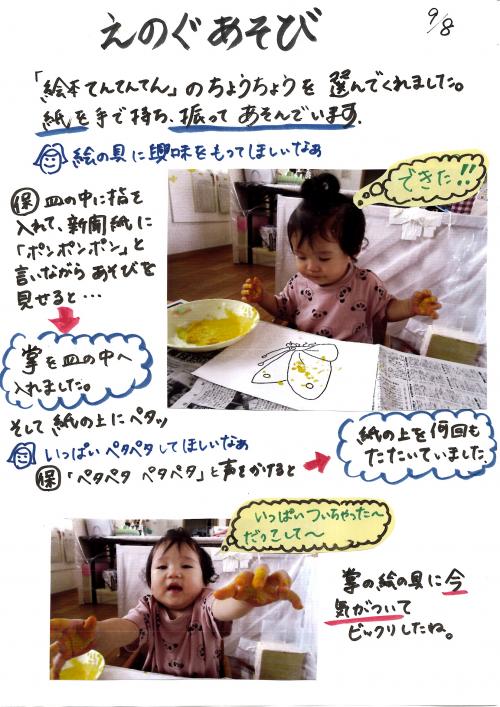 えのぐあそび
9/8
「絵本てんてんてん」のちょうちょうを 選んでくれました。
紙を手で持ち、振って あそんでいます。
絵の具に興味をもってほしいなぁ
できた!!
保 皿の中に指を
入れて、新聞紙に
「ポンポンポン」と
言いながら あそびを
見せると・・・
掌を皿の中へ
入れました。
そして 紙の上にペタッ
いっぱいペタペタしてほしいなぁ
保「ペタペタ ペタペタ」と声をかけると
紙の上を何回も
たたいていました
いっぱいついちゃった〜
だっこして〜
掌の絵の具に今
気がついて
ビックリしたね。